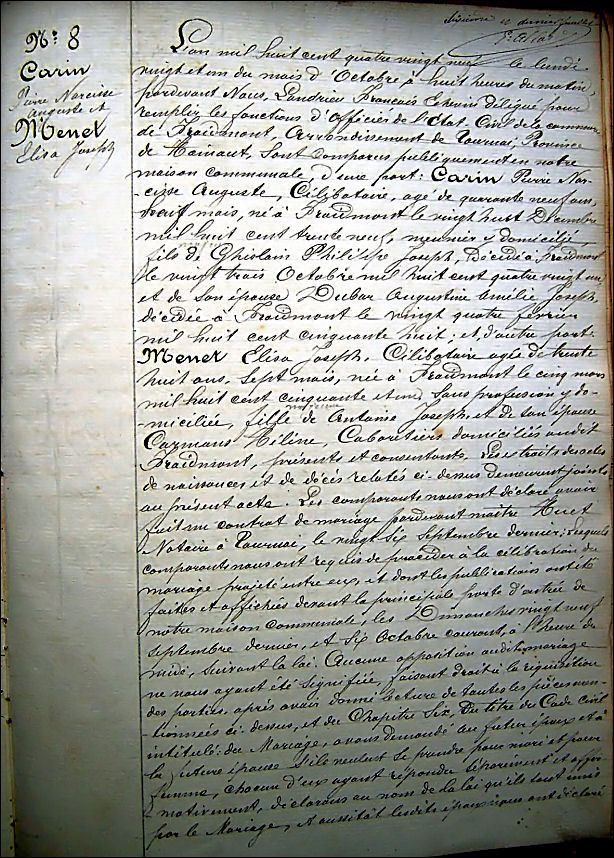 Nº 8
Carin
Pierre Narcisse
Auguste et
Menet
Elisa Joseph
sixième et dernier feuillet
L'an mil huit cent quatre vingt neuf le lundi
vingt et un du mois d'Octobre à huit heures du matin,
pardevant Nous, Landrieu François Echevin délégué pour
remplir les fonctions d'Officier de l'Etat-Civil de la commune
de Froidmont, Arrondissement de Tournai, Province
de Hainaut, sont comparus publiquement en notre
maison communale, d'une part: Carin Pierre Nar-
cisse Auguste, Célibataire, agé de quarante neuf ans,
neuf mois, né à Froidmont le vingt huit Décembre
mil huit cent trente neuf, meunier y domicilié,
fils de Ghislain Philippe Joseph, décédé à Froidmont
le vingt trois Octobre mil huit cent quatre vingt un
et de son épouse Dubar Augustine Amélie Joseph,
décédée à Froidmont le vingt quatre février
mil huit cent cinquante huit; et, d'autre part:
Menet Elisa Joseph, Célibataire agée de trente
huit ans, sept mois, née à Froidmont le cinq mars
mil huit cent cinquante et un, sans profession y do-
miciliée, fille de Antoine Joseph et de son épouse
Carmans Céline, Cabaretiers domiciliés audit
Froidmont, présents et consentants. Les extraits des actes
de naissances et de décès relatés ci-dessus demeurent joints
au présent acte. Les comparants nous ont déclaré avoir
fait un contrat de mariage pardevant maître Huet
Notaire à Tournai, le vingt six septembre dernier; Lesquels
comparants nous ont requis de procéder à la célébration du
mariage projeté entre eux, et dont les publications ont été
faites et affichées devant la principale porte d'entrée de
notre maison communale, les Dimanches vingt neuf
septembre dernier, et six Octobre courant, à l'heure de
midi, suivant la loi. Aucune opposition audit mariage
ne nous ayant été signifiée, faisant droit à la réquisition
des parties, après avoir donné lecture de toutes les pièces men-
tionnées ci-dessus, et du Chapitre Six, du titre du Code Civil
intitulé: du Mariage, avons demandé au futur époux et à
la future épouse s'ils veulent se prendre pour mari et pour
femme, chacun d'eux ayant répondu séparément et affir-
mativement, déclarons au nom de la loi qu'ils sont unis
par le Mariage, et aussitôt lesdits époux nous ont déclaré